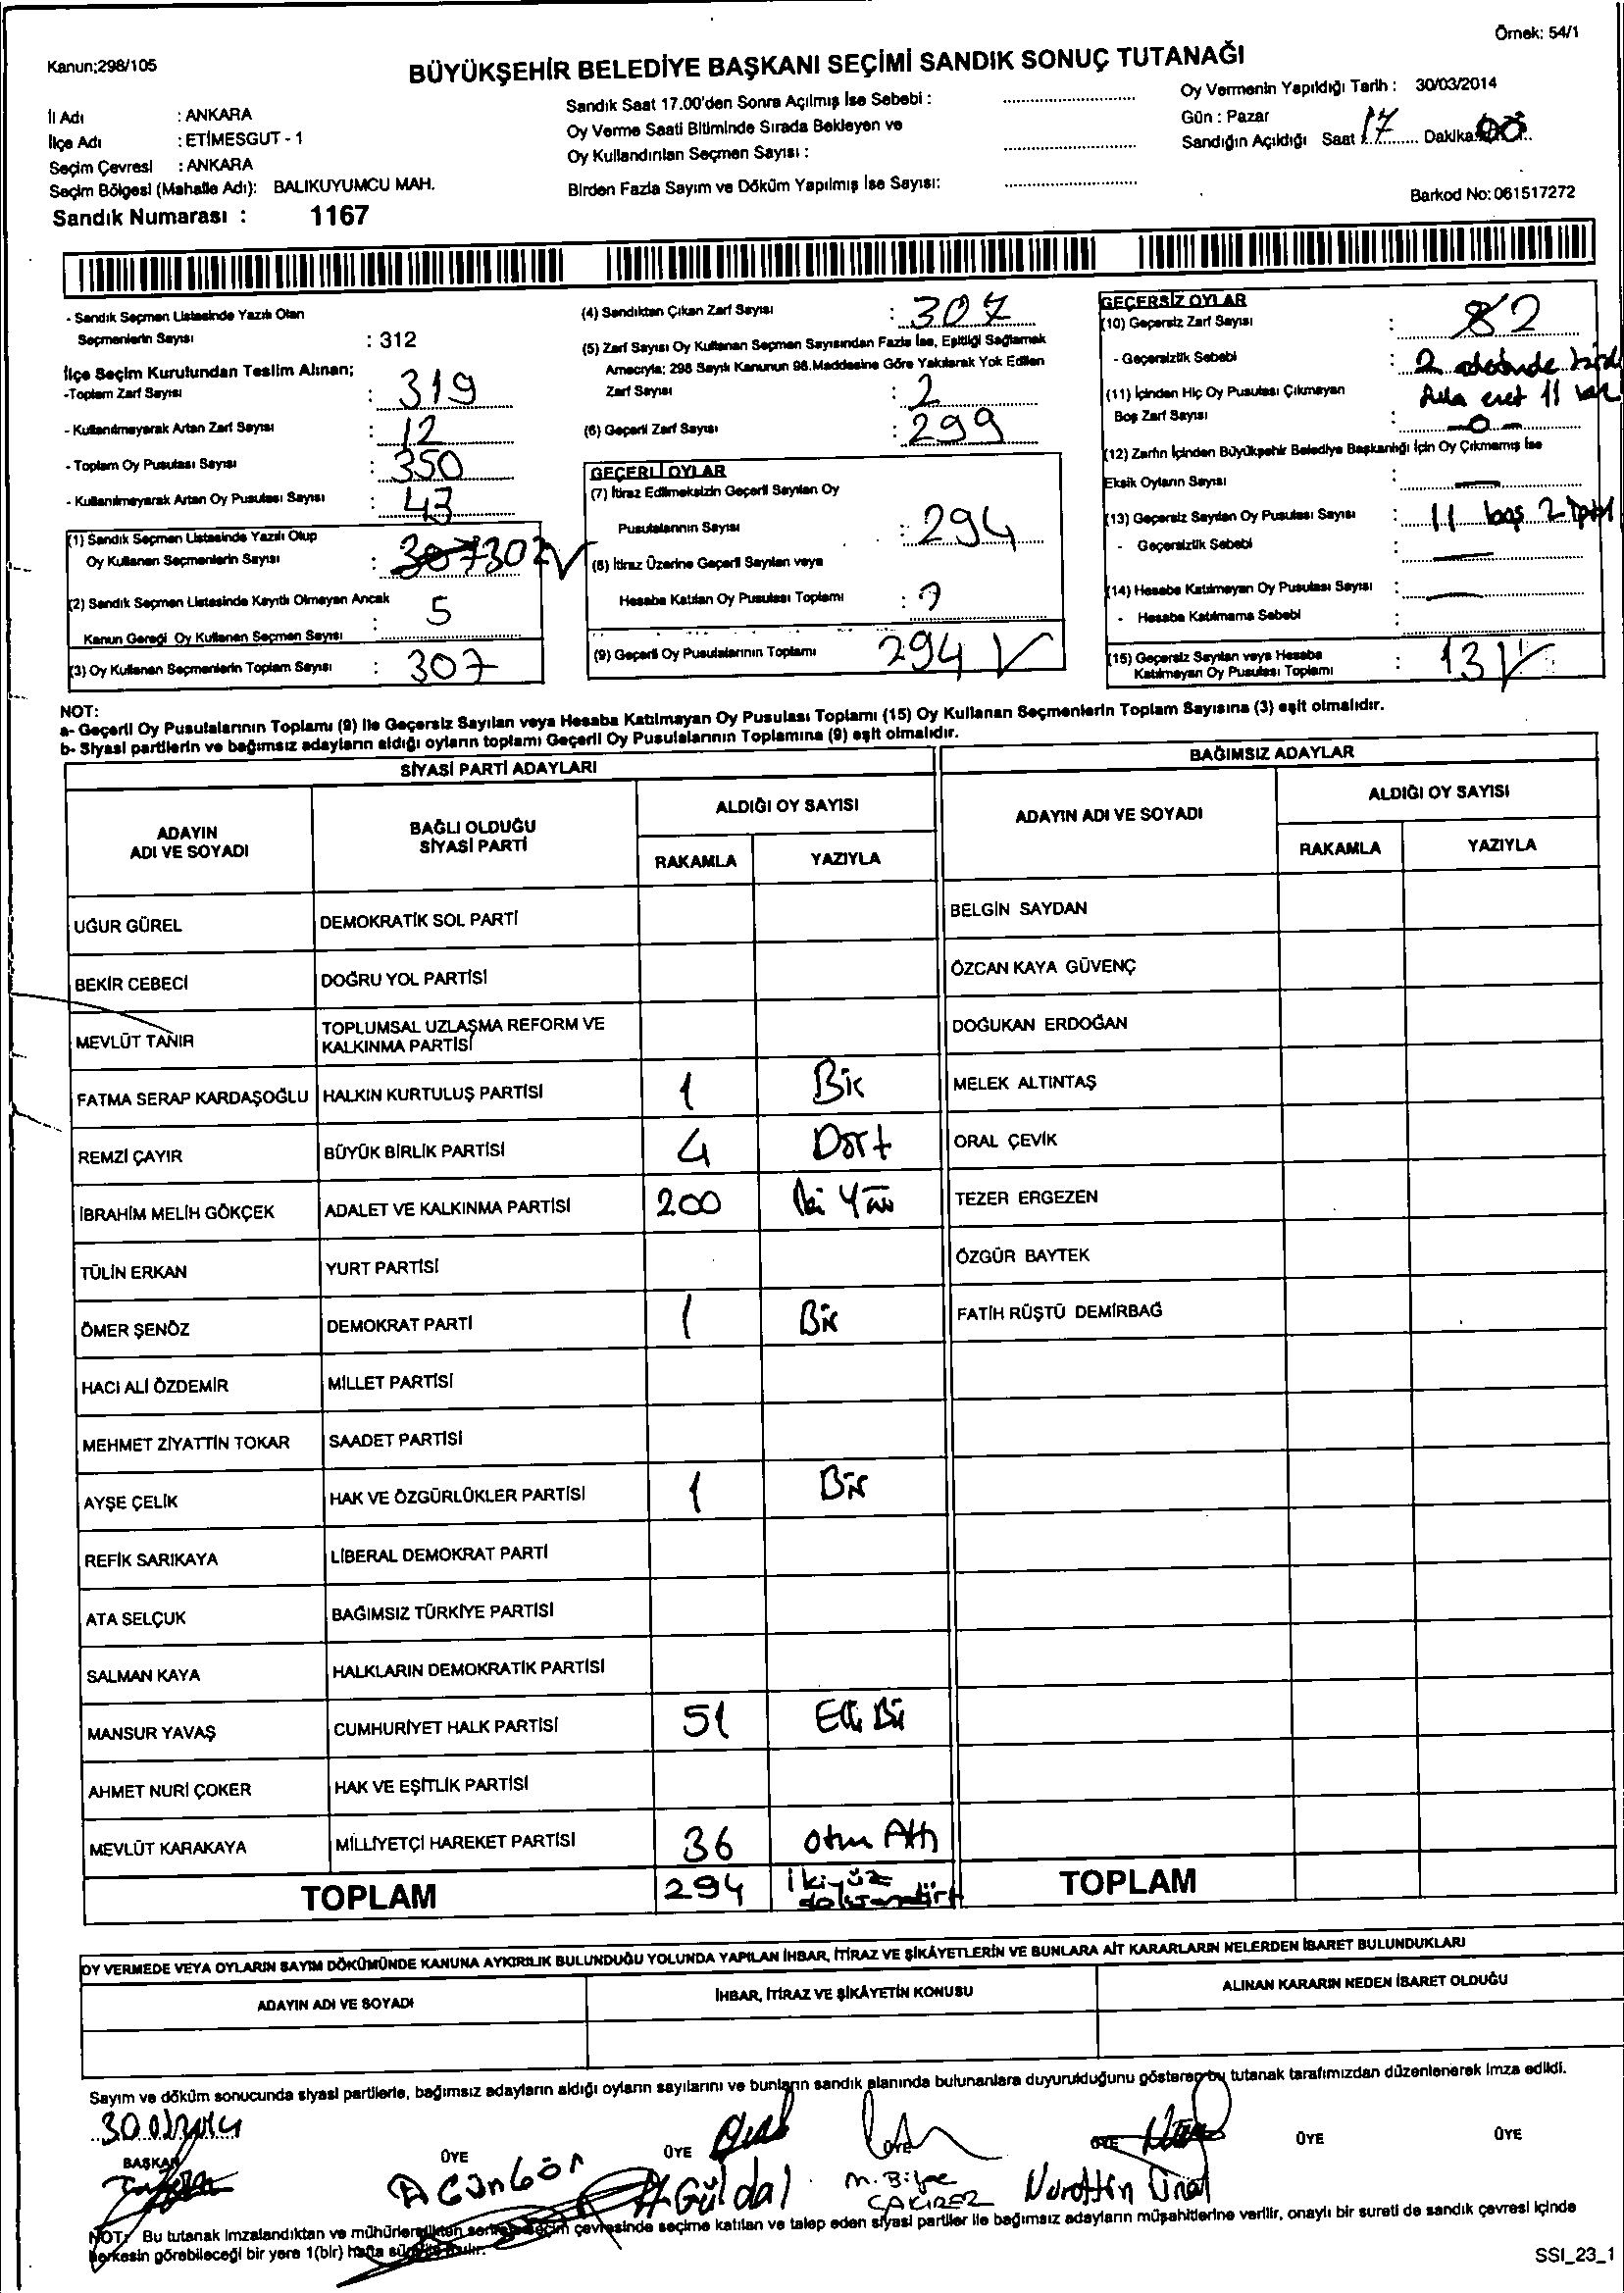 Örnek: 54/1
Kanun;298/105
BÜYÜKŞEHİR BELEDİYE BAŞKANI SEÇİMİ SANDIK SONUÇ TUTANAĞI
İl Adı : ANKARA
İlçe Adı : ETİMESGUT - 1
Seçim Çevresi : ANKARA
Seçim Bölgesi (Mahalle Adı): BALIKUYUMCU MAH.
Sandık Numarası : 1167
Sandık Saat 17.00'den Sonra Açılmış İse Sebebi :
Oy Verme Saati Bitiminde Sırada Bekleyen ve
Oy Kullandırılan Seçmen Sayısı :
Birden Fazla Sayım ve Döküm Yapılmış İse Sayısı:
Oy Vermenin Yapıldığı Tarih : 30/03/2014
Gün : Pazar
Sandığın Açıldığı Saat 17 Dakika:
Barkod No: 061517272
- Sandık Seçmen Listesinde Yazılı Olan
Seçmenlerin Sayısı : 312
İlçe Seçim Kurulundan Teslim Alınan;
-Toplam Zarf Sayısı : 319
- Kullanılmayarak Artan Zarf Sayısı : 12
- Toplam Oy Pusulası Sayısı : 350
- Kullanılmayarak Artan Oy Pusulası Sayısı : 43
(1) Sandık Seçmen Listesinde Yazılı Olup
Oy Kullanan Seçmenlerin Sayısı : 307 302
(2) Sandık Seçmen Listesinde Kayıtlı Olmayan Ancak
Kanun Gereği Oy Kullanan Seçmen Sayısı : 5
(3) Oy Kullanan Seçmenlerin Toplam Sayısı : 307
(4) Sandıktan Çıkan Zarf Sayısı : 307
(5) Zarf Sayısı Oy Kullanan Seçmen Sayısından Fazla İse, Eşitliği Sağlamak
Amacıyla; 298 Sayılı Kanunun 98.Maddesine Göre Yakılarak Yok Edilen
Zarf Sayısı : 2
(6) Geçerli Zarf Sayısı : 299
GEÇERLİ OYLAR
(7) İtiraz Edilmeksizin Geçerli Sayılan Oy
Pusulalarının Sayısı : 294
(8) İtiraz Üzerine Geçerli Sayılan veya
Hesaba Katılan Oy Pusulası Toplamı :
(9) Geçerli Oy Pusulalarının Toplamı 294
GEÇERSİZ OYLAR
(10) Geçersiz Zarf Sayısı : 82
- Geçersizlik Sebebi : 2 adetinde
11 var
(11) İçinden Hiç Oy Pusulası Çıkmayan
Boş Zarf Sayısı : -0-
(12) Zarfın İçinden Büyükşehir Belediye Başkanlığı İçin Oy Çıkmamış İse
Eksik Oyların Sayısı : —
(13) Geçersiz Sayılan Oy Pusulası Sayısı : 11 boş 2
- Geçersizlik Sebebi : —
(14) Hesaba Katılmayan Oy Pusulası Sayısı : —
- Hesaba Katılmama Sebebi :
(15) Geçersiz Sayılan veya Hesaba
Katılmayan Oy Pusulası Toplamı : 13
NOT:
a- Geçerli Oy Pusulalarının Toplamı (9) ile Geçersiz Sayılan veya Hesaba Katılmayan Oy Pusulası Toplamı (15) Oy Kullanan Seçmenlerin Toplam Sayısına (3) eşit olmalıdır.
b- Siyasi partilerin ve bağımsız adayların aldığı oyların toplamı Geçerli Oy Pusulalarının Toplamına (9) eşit olmalıdır.
SİYASİ PARTİ ADAYLARI
BAĞIMSIZ ADAYLAR
ADAYIN ADI VE SOYADI
BAĞLI OLDUĞU SİYASİ PARTİ
ALDIĞI OY SAYISI
RAKAMLA YAZIYLA
ADAYIN ADI VE SOYADI
ALDIĞI OY SAYISI
RAKAMLA YAZIYLA
UĞUR GÜREL DEMOKRATİK SOL PARTİ BELGİN SAYDAN
BEKİR CEBECİ DOĞRU YOL PARTİSİ ÖZCAN KAYA GÜVENÇ
MEVLÜT TANIR TOPLUMSAL UZLAŞMA REFORM VE KALKINMA PARTİSİ DOĞUKAN ERDOĞAN
FATMA SERAP KARDAŞOĞLU HALKIN KURTULUŞ PARTİSİ 1 Bir MELEK ALTINTAŞ
REMZİ ÇAYIR BÜYÜK BİRLİK PARTİSİ 4 Dört ORAL ÇEVİK
İBRAHİM MELİH GÖKÇEK ADALET VE KALKINMA PARTİSİ 200 İki Yüz TEZER ERGEZEN
TÜLİN ERKAN YURT PARTİSİ ÖZGÜR BAYTEK
ÖMER ŞENÖZ DEMOKRAT PARTİ 1 Bir FATİH RÜŞTÜ DEMİRBAĞ
HACI ALİ ÖZDEMİR MİLLET PARTİSİ
MEHMET ZİYATTİN TOKAR SAADET PARTİSİ
AYŞE ÇELİK HAK VE ÖZGÜRLÜKLER PARTİSİ 1 Bir
REFİK SARIKAYA LİBERAL DEMOKRAT PARTİ
ATA SELÇUK BAĞIMSIZ TÜRKİYE PARTİSİ
SALMAN KAYA HALKLARIN DEMOKRATİK PARTİSİ
MANSUR YAVAŞ CUMHURİYET HALK PARTİSİ 51 Elli Bir
AHMET NURİ ÇOKER HAK VE EŞİTLİK PARTİSİ
MEVLÜT KARAKAYA MİLLİYETÇİ HAREKET PARTİSİ 36 Otuz Altı
TOPLAM 294 ikiyüz doksandört TOPLAM
OY VERMEDE VEYA OYLARIN SAYIM DÖKÜMÜNDE KANUNA AYKIRILIK BULUNDUĞU YOLUNDA YAPILAN İHBAR, İTİRAZ VE ŞİKÂYETLERİN VE BUNLARA AİT KARARLARIN NELERDEN İBARET BULUNDUKLARI
ADAYIN ADI VE SOYADI İHBAR, İTİRAZ VE ŞİKÂYETİN KONUSU ALINAN KARARIN NEDEN İBARET OLDUĞU
Sayım ve döküm sonucunda siyasi partilerle, bağımsız adayların aldığı oyların sayılarını ve bunların sandık alanında bulunanlara duyurulduğunu gösteren bu tutanak tarafımızdan düzenlenerek imza edildi.
BAŞKAN ÜYE ÜYE ÜYE ÜYE ÜYE ÜYE
A Güngör A Güldal M. Bilge ÇAKIREZ Nurettin Ünal
NOT: Bu tutanak imzalandıktan ve mühürlendikten sonra seçim çevresinde seçime katılan ve talep eden siyasi partiler ile bağımsız adayların müşahitlerine verilir, onaylı bir sureti de sandık çevresi içinde
herkesin görebileceği bir yere 1(bir) hafta süre ile asılır.
SSI_23_1